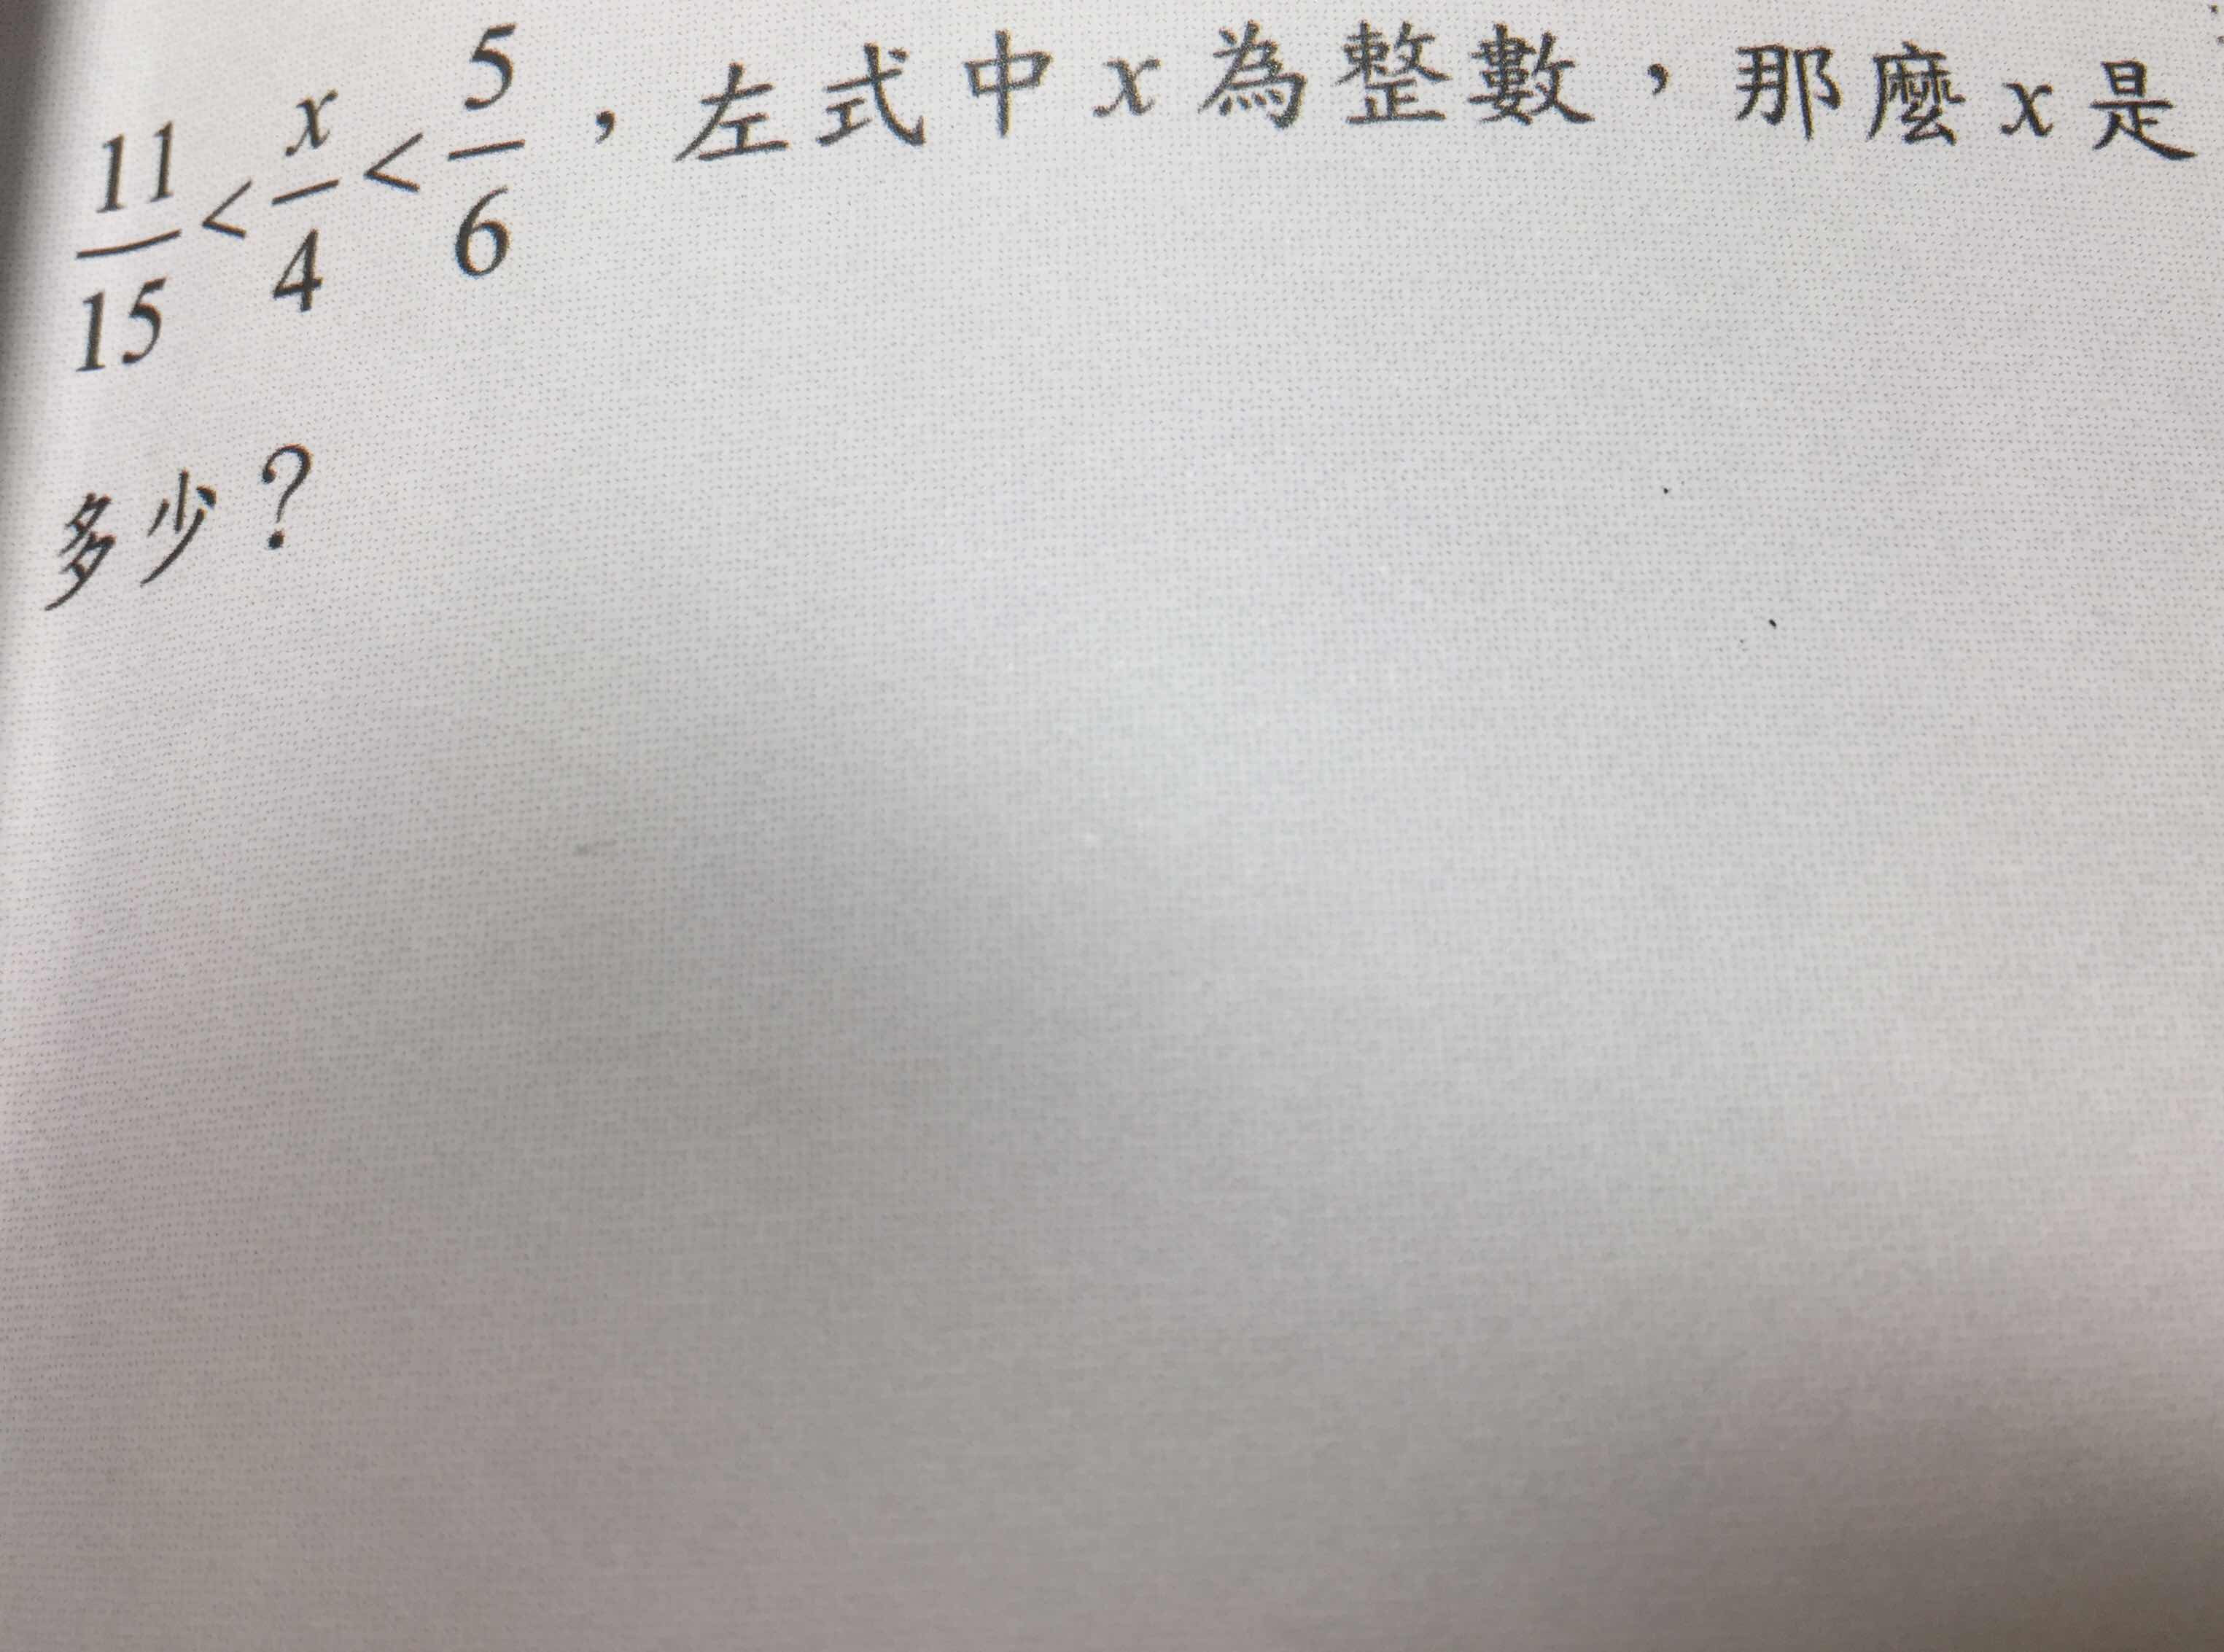 11/15 < x/4 < 5/6，左式中 x 為整數，那麼 x 是
多少？